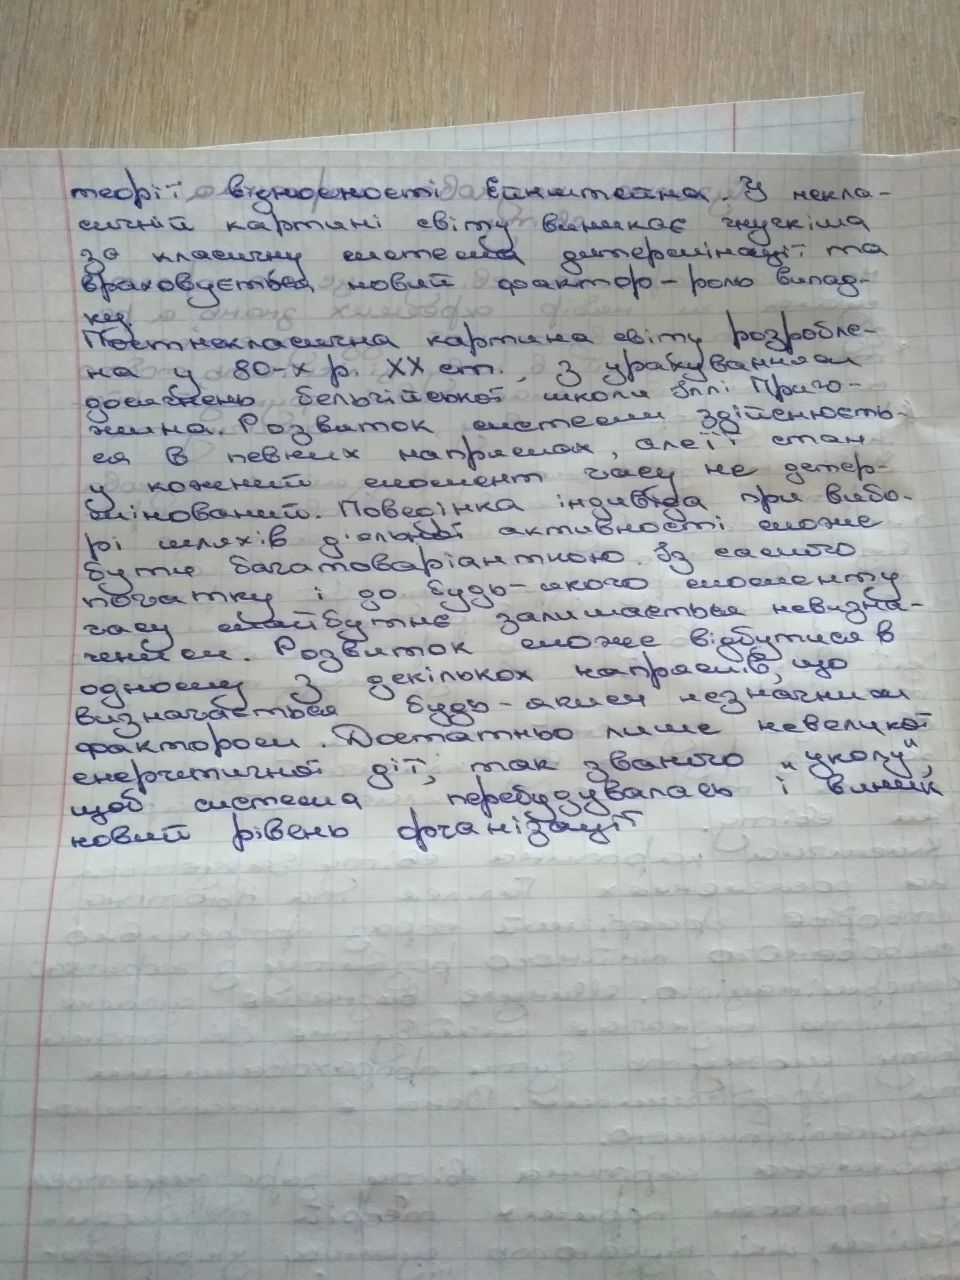 теорії відносності Ейнштейна. У некла-
сичній картині світу виникає гнучкіша
за класичну система детермінації та
враховується новий фактор – роль випад-
ку.
Постнекласична картина світу розробле-
на у 80-х р. XX ст., з урахуванням
досягнень бельгійської школи Іллі Приго-
жина. Розвиток системи здійснюєть-
ся в певних напрямах, але її стан
у кожений момент часу не детер-
мінований. Поведінка індивіда при вибо-
рі шляхів діяльної активності може
бути багатоваріантною. Із самого
початку і до будь-якого моменту
часу майбутнє залишається невизна-
ченим. Розвиток може відбутися в
одному з декількох напрямів, що
визначається будь-яким незначним
фактором. Достатньо лише невеликої
енергетичної дії, так званого „уколу",
щоб система перебудувалась і виник
новий рівень організації